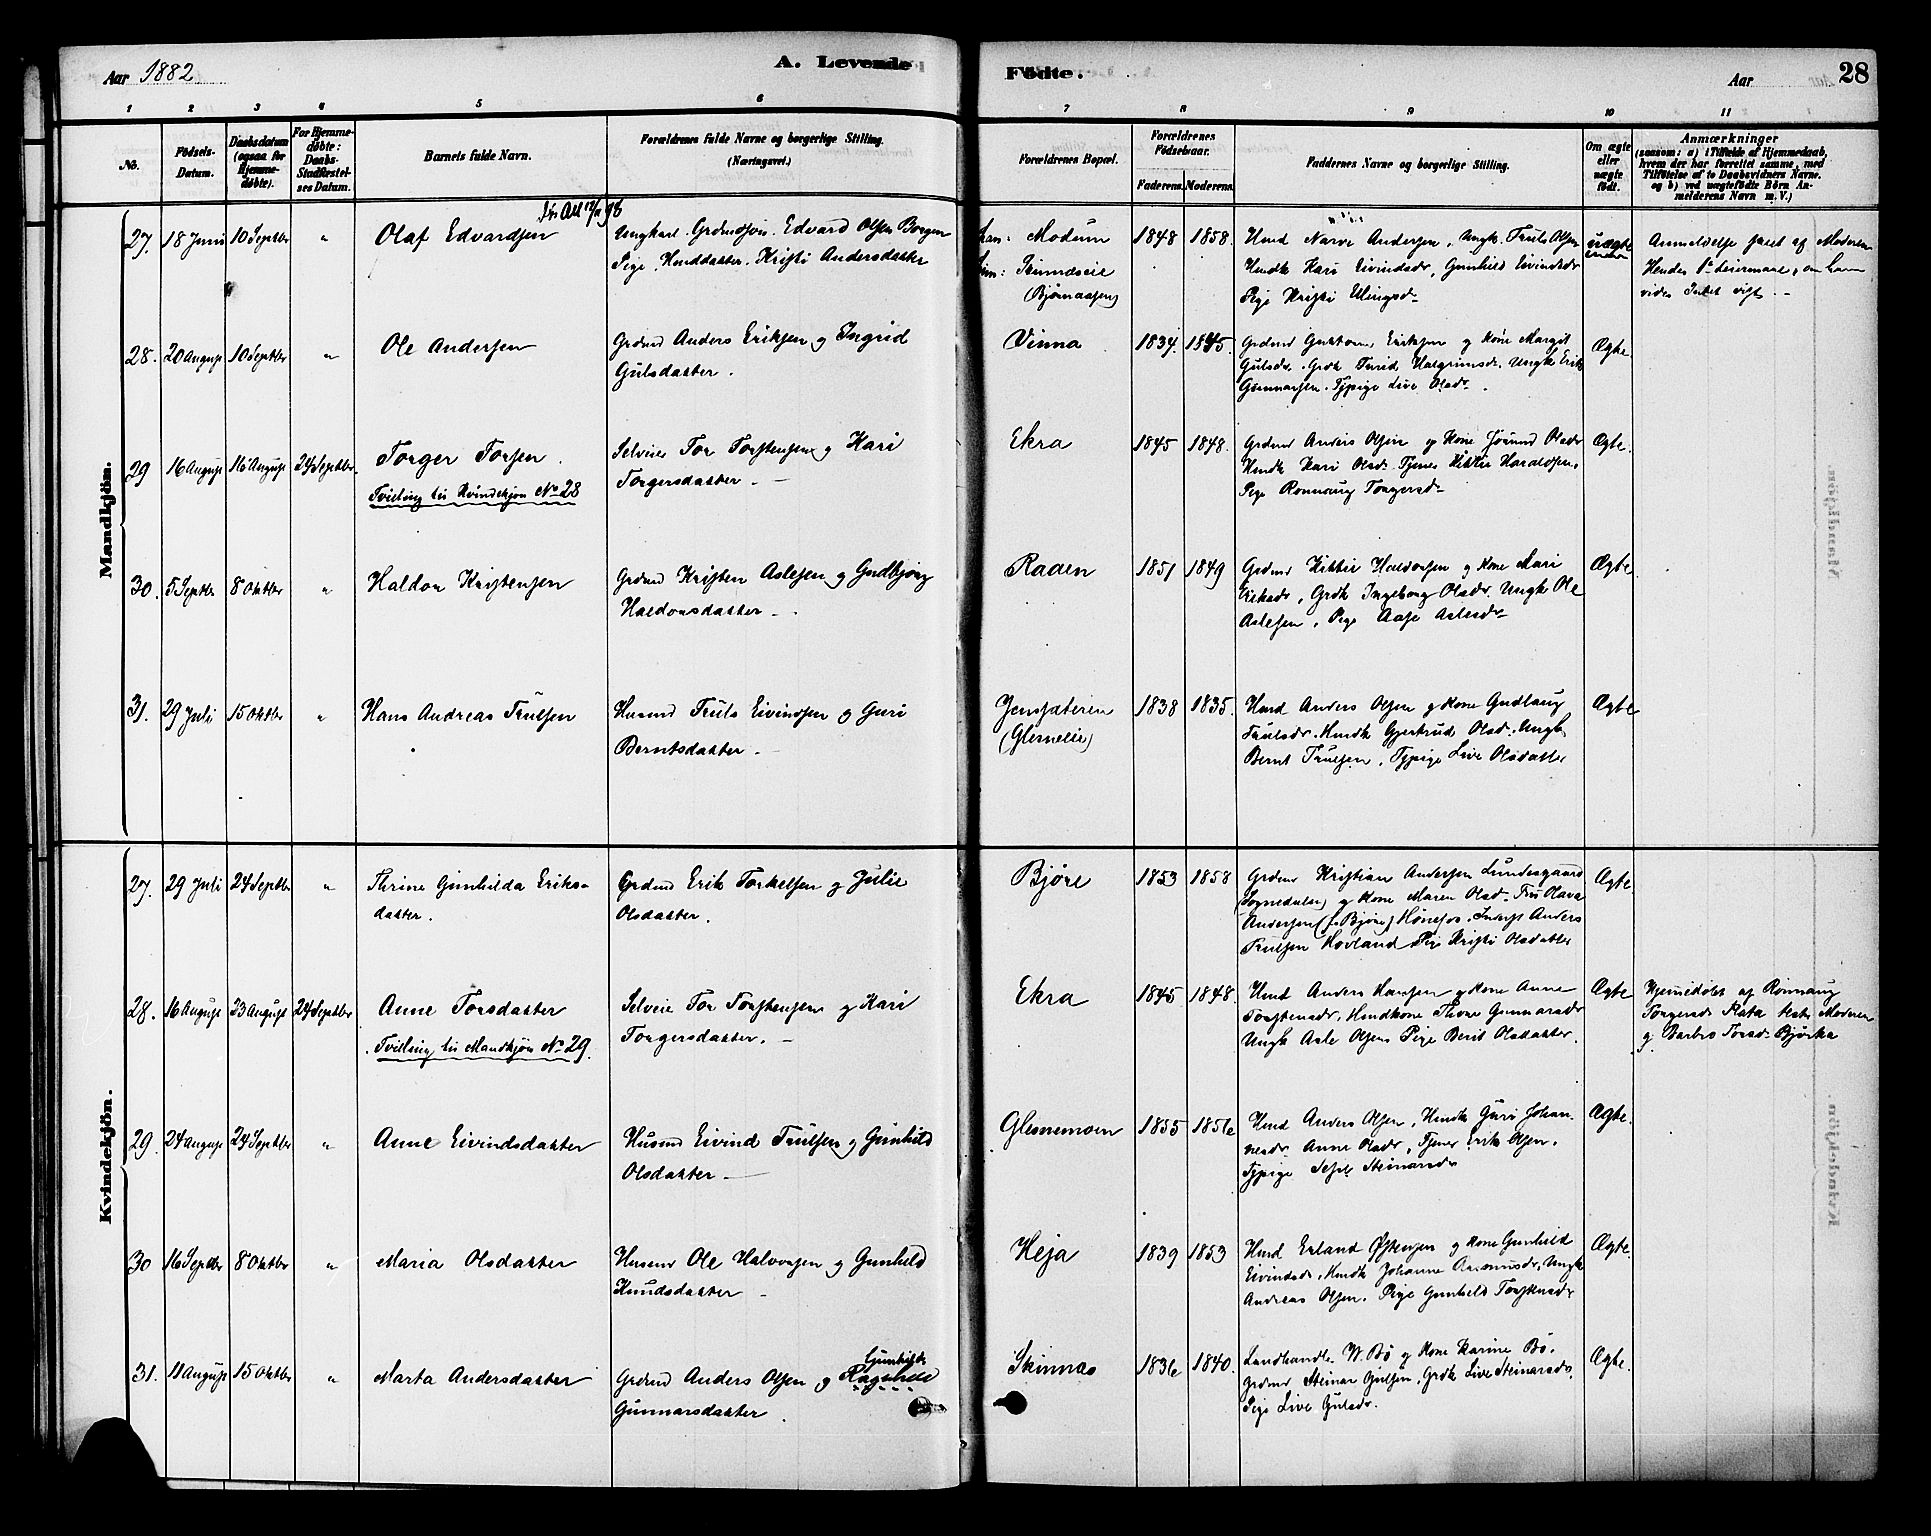 Aar 1882
A. Levende
Födte.
Aar
28
1 2 3 4 5 6 7 8 9 10 11
No.
Födsels-Datum.
Daabsdatum (ogsaa for Hjemmedøbte).
For Hjemmedøbte: Daabs-Stadfæstelses Datum.
Barnets fulde Navn.
Forældrenes fulde Navne og borgerlige Stilling. (Næringsvei.)
Forældrenes Bopæl.
Forældrenes Födselsaar.
Faderens. Moderens.
Faddernes Navne og borgerlige Stilling.
Om ægte eller uægte født.
Anmærkninger
(saasom: a) i Tilfælde af Hjemmedaab, hvem der har forrettet samme, med Tilføielse af to Daabsvidners Navne, og b) ved uægtefødte Börn Anmelderens Navn m. V.)
Mandkjön.
27. 18 Juni 10 Septbr " Olaf Edvardsen
Ungkarl. Grdmdsøn. Edvard Olsen Borgen
Pige, Husddatter. Kristi Andersdatter
Modum 1848 1858.
Skinnæseie
(Bjørnaasen)
Husd Narve Andersen, Ungk. Truls Olsen
Husdk Kari Eivindsdr, Gunhild Eivindsdr
Pige Kristi Ellingsd
uægte
Anmeldelse skeet af Moderen
Hendes 1ste Leiermaal, om ham
vides Intet vist. -
28. 20 August 10 Septbr " Ole Andersen
Grdmd Anders Eriksen og Ingrid
Gulsdatter.
Vinna 1834. 1845.
Grdmd Guttorm Eriksen og Kone Margit
Gulsdr. Grdk Turid Halgrimsdr. Ungk Erik
Gunnarsen. Tjpige Live Olsdr.
Ægte
29 16 August 16 August 24 Septbr. Torger Torsen.
Tvilling til Kvindekjøn No 28
Selveier Tor Torstensen og Kari
Torgersdatter. -
Ekra 1845 1848.
Grdmd Anders Olsen og Kone Jørund Olsdr
Husdk Kari Olsdr. Tjener Kittil Haraldsen.
Pige Rønnaug Torgersd
Ægte.
30. 5 Septbr 8 Oktbr " Haldor Kristensen
Grdmd Kristen Aslesen og Gudbjørg
Haldorsdatter -
Raaen 1851 1849
Grdmd Kittil Haldorsen og Kone Mari
Eriksdr, Grdk Ingeborg Olsdr. Ungk Ole
Aslesen, Pige Aase Aslesdr
Ægte.
31. 29 Juli 15 Oktbr " Hans Andreas Trulsen
Husmd Truls Eivindsen og Guri
Berntsdatter. -
Jenssæteren 1838 1835.
(Glesneeie)
Husd Anders Olsen og Kone Gudlaug
Trulsdr. Husdk Gjertrud Olsd. Ungk
Bernt Trulsen, Tjpige Live Olsdatter
Ægte
Kvindekjön.
27. 29 Juli 24 Septbr " Thrine Gunhilda Eriks-
datter.
Grdmd Erik Torkelsen og Julie
Olsdatter.
Bjøre 1853 1858
Grdmd Kristian Andersen Lundesgaard
(Sognedalen) og Kone Maren Olsd. Fru Olava
Andersen (f. Bjøre) Hønefos. Inderst Anders
Trulsen Hovland Pige Kristi Olsdatter
Ægte
28. 16 August 23 August 24 Septbr Anne Torsdatter
Tvilling til Mandkjøn No 29.
Selveier Tor Torstensen og Kari
Torgersdatter. -
Ekra 1845 1848.
Husd Anders Hansen og Kone Anne
Torstensdr, Husdkone Thone Gunnarsdr
Ungk Asle Olsen Pige Berit Olsdatter.
Ægte
Hjemmedøbt af Rønnaug
Torgersd. Plata test: Moderen
og Barbro Torsd. Bjørka
29. 24 August 24 Septbr " Anne Eivindsdatter
Husmd Eivind Trulsen og Gunhild
Olsdatter -
Glesnemoen 1855 1856
Husd Anders Olsen, Husdk Guri Johan-
nesdr Anne Olsdr, Tjener Erik Olsen.
Tjpige Sissel Steinarsdr
Ægte.
30 16 Septbr 8 Oktbr " Maria Olsdatter
Husmd Ole Halvorsen og Gunhild
Knudsdatter -
Heja 1839 1853
Husd Erland Østensen og Kone Gunhild
Eivindsdr, Husdk Johanne Rasmusdr. Ungk
Andreas Olsen. Pige Gunhild Torstensdr
Ægte.
31. 11 August 15 Oktbr " Marta Andersdatter
Gunhild
Grdmd Anders Olsen og Ragnhild
Gunnarsdatter.
Skinnæs 1836 1840.
Landhandle. W. Bø og Kone Karine Bø.
Grdmd Steinar Gulsen, Grdk Live Steinarsdr,
Pige Live Gulsdr.
Ægte.